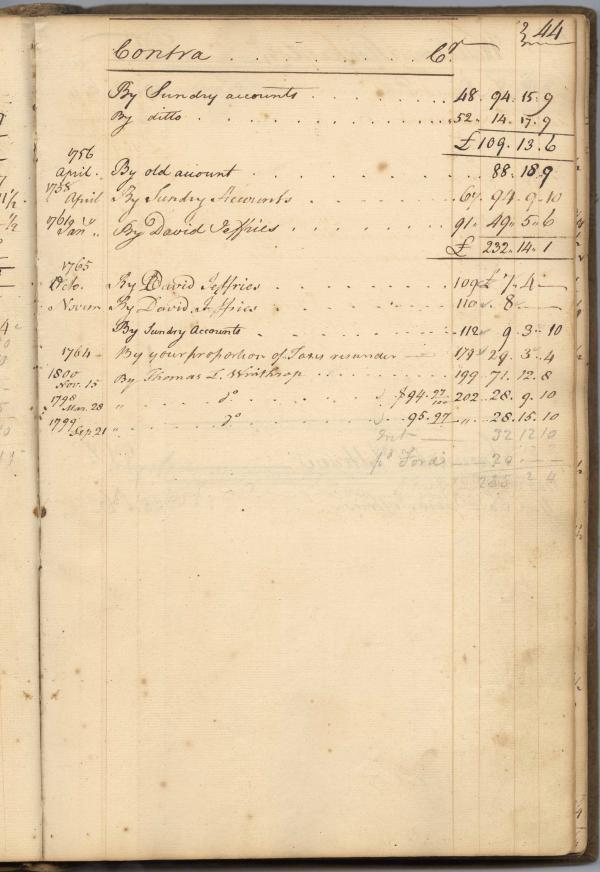 44
Contra . . . . . . . . . Cr
By Sundry accounts . . . . . . 48. 94. 15. 9
By ditto . . . . . . . . . . 52. 14. 17. 9
£ 109. 13. 6
1756
April. By old account . . . . . . . 88. 18. 9
1758
April By Sundry Accounts . . . . . . 67. 94. 9. 10
1761
Jan. By David Jeffries . . . . . . 91. 49. 5. 6
£ 232. 14. 1
1765
Octo. By David Jeffries . . . . . . 109 £ 7. 4 —
Novem By David Jeffries . . . . . . 110. 8. —
By Sundry Accounts . . . . . . 112. 9. 3. 10
1764 By your proportion of Taxes — 179. 29. 3. 4
1800
Nov. 15 By Thomas L. Winthrop . . . . . 199. 71. 12. 8
1798
Mar. 28 " . . . . do . . . . $94. 97/100 202. 28. 9. 10
1799
Sep 21 " . . . . do . . . . 95. 97 " 28. 15. 10
Int — 32 12 10
pd Ford — 20 — —
2 4